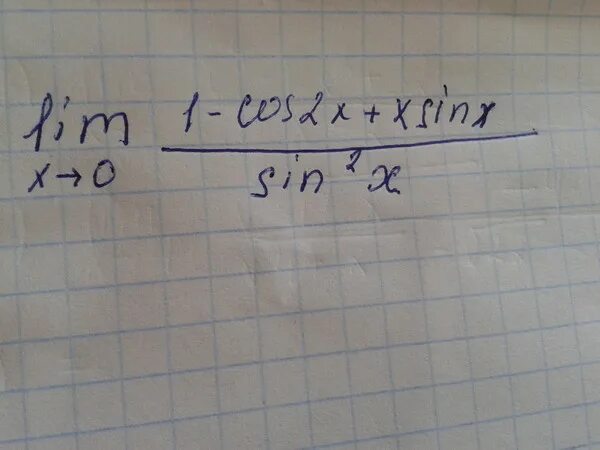 lim 1-cos2x+xsinx
x→0 sin²x